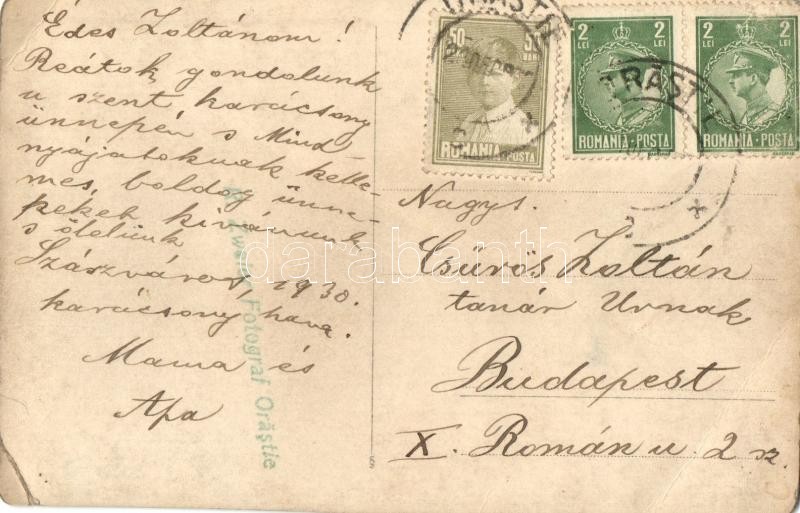 Édes Zoltánom!
Reátok gondolunk
u szent karácsony
ünnepén s Mind-
nyájatoknak kelle-
mes, boldog ünne-
peket kivánunk
s ölelünk
Szászváros, 1930.
karácsony hava.
Mama és
Apa
Fotograf Orăștie
50 BANI
ROMANIA POSTA
2 LEI
ROMANIA·POSTA
2 LEI
ROMANIA·POSTA
Nagys.
Csűrös Zoltán
tanár Urnak
Budapest
X. Román u. 2 sz.
darabanth